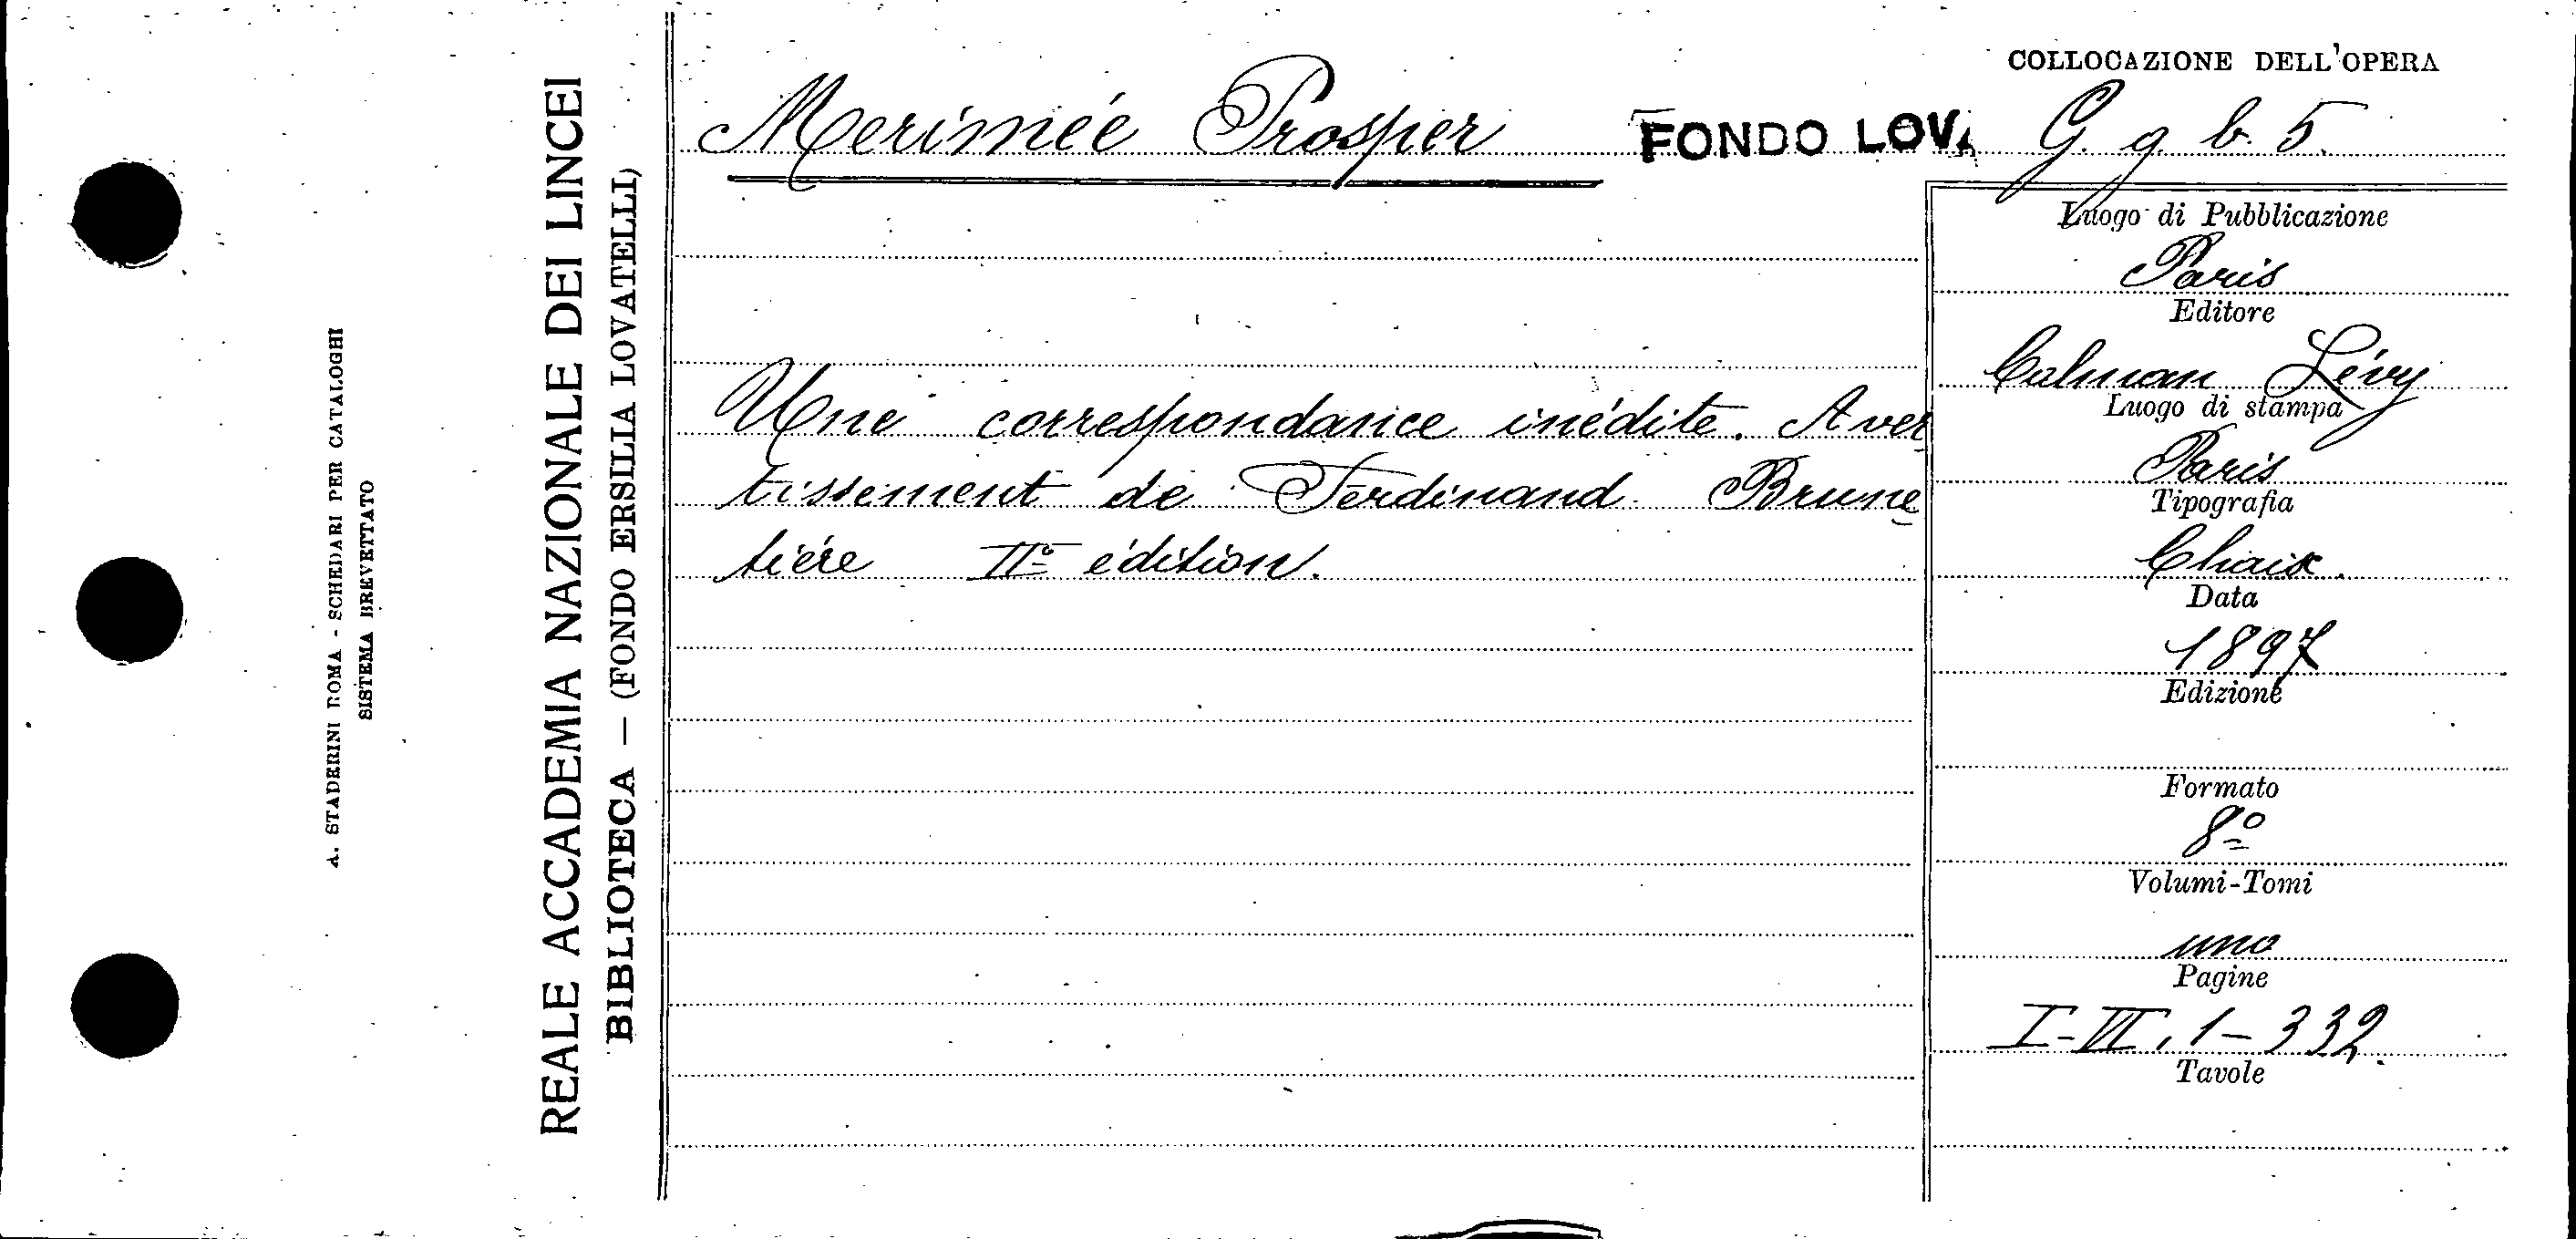 A. STADERINI ROMA - SCHEDARI PER CATALOGHI
SISTEMA BREVETTATO
REALE ACCADEMIA NAZIONALE DEI LINCEI
BIBLIOTECA — (FONDO ERSILIA LOVATELLI)
Merimée Prosper
FONDO LOV.
COLLOCAZIONE DELL'OPERA
G. g. b. 5.
Une correspondance inédite. Aver
tissement de Ferdinand Brune
tiére IIe édition.
Luogo di Pubblicazione
Paris
Editore
Calman Lévy
Luogo di stampa
Paris
Tipografia
Chaix.
Data
1897
Edizione
Formato
8º
Volumi-Tomi
uno
Pagine
I-VI, 1-332.
Tavole